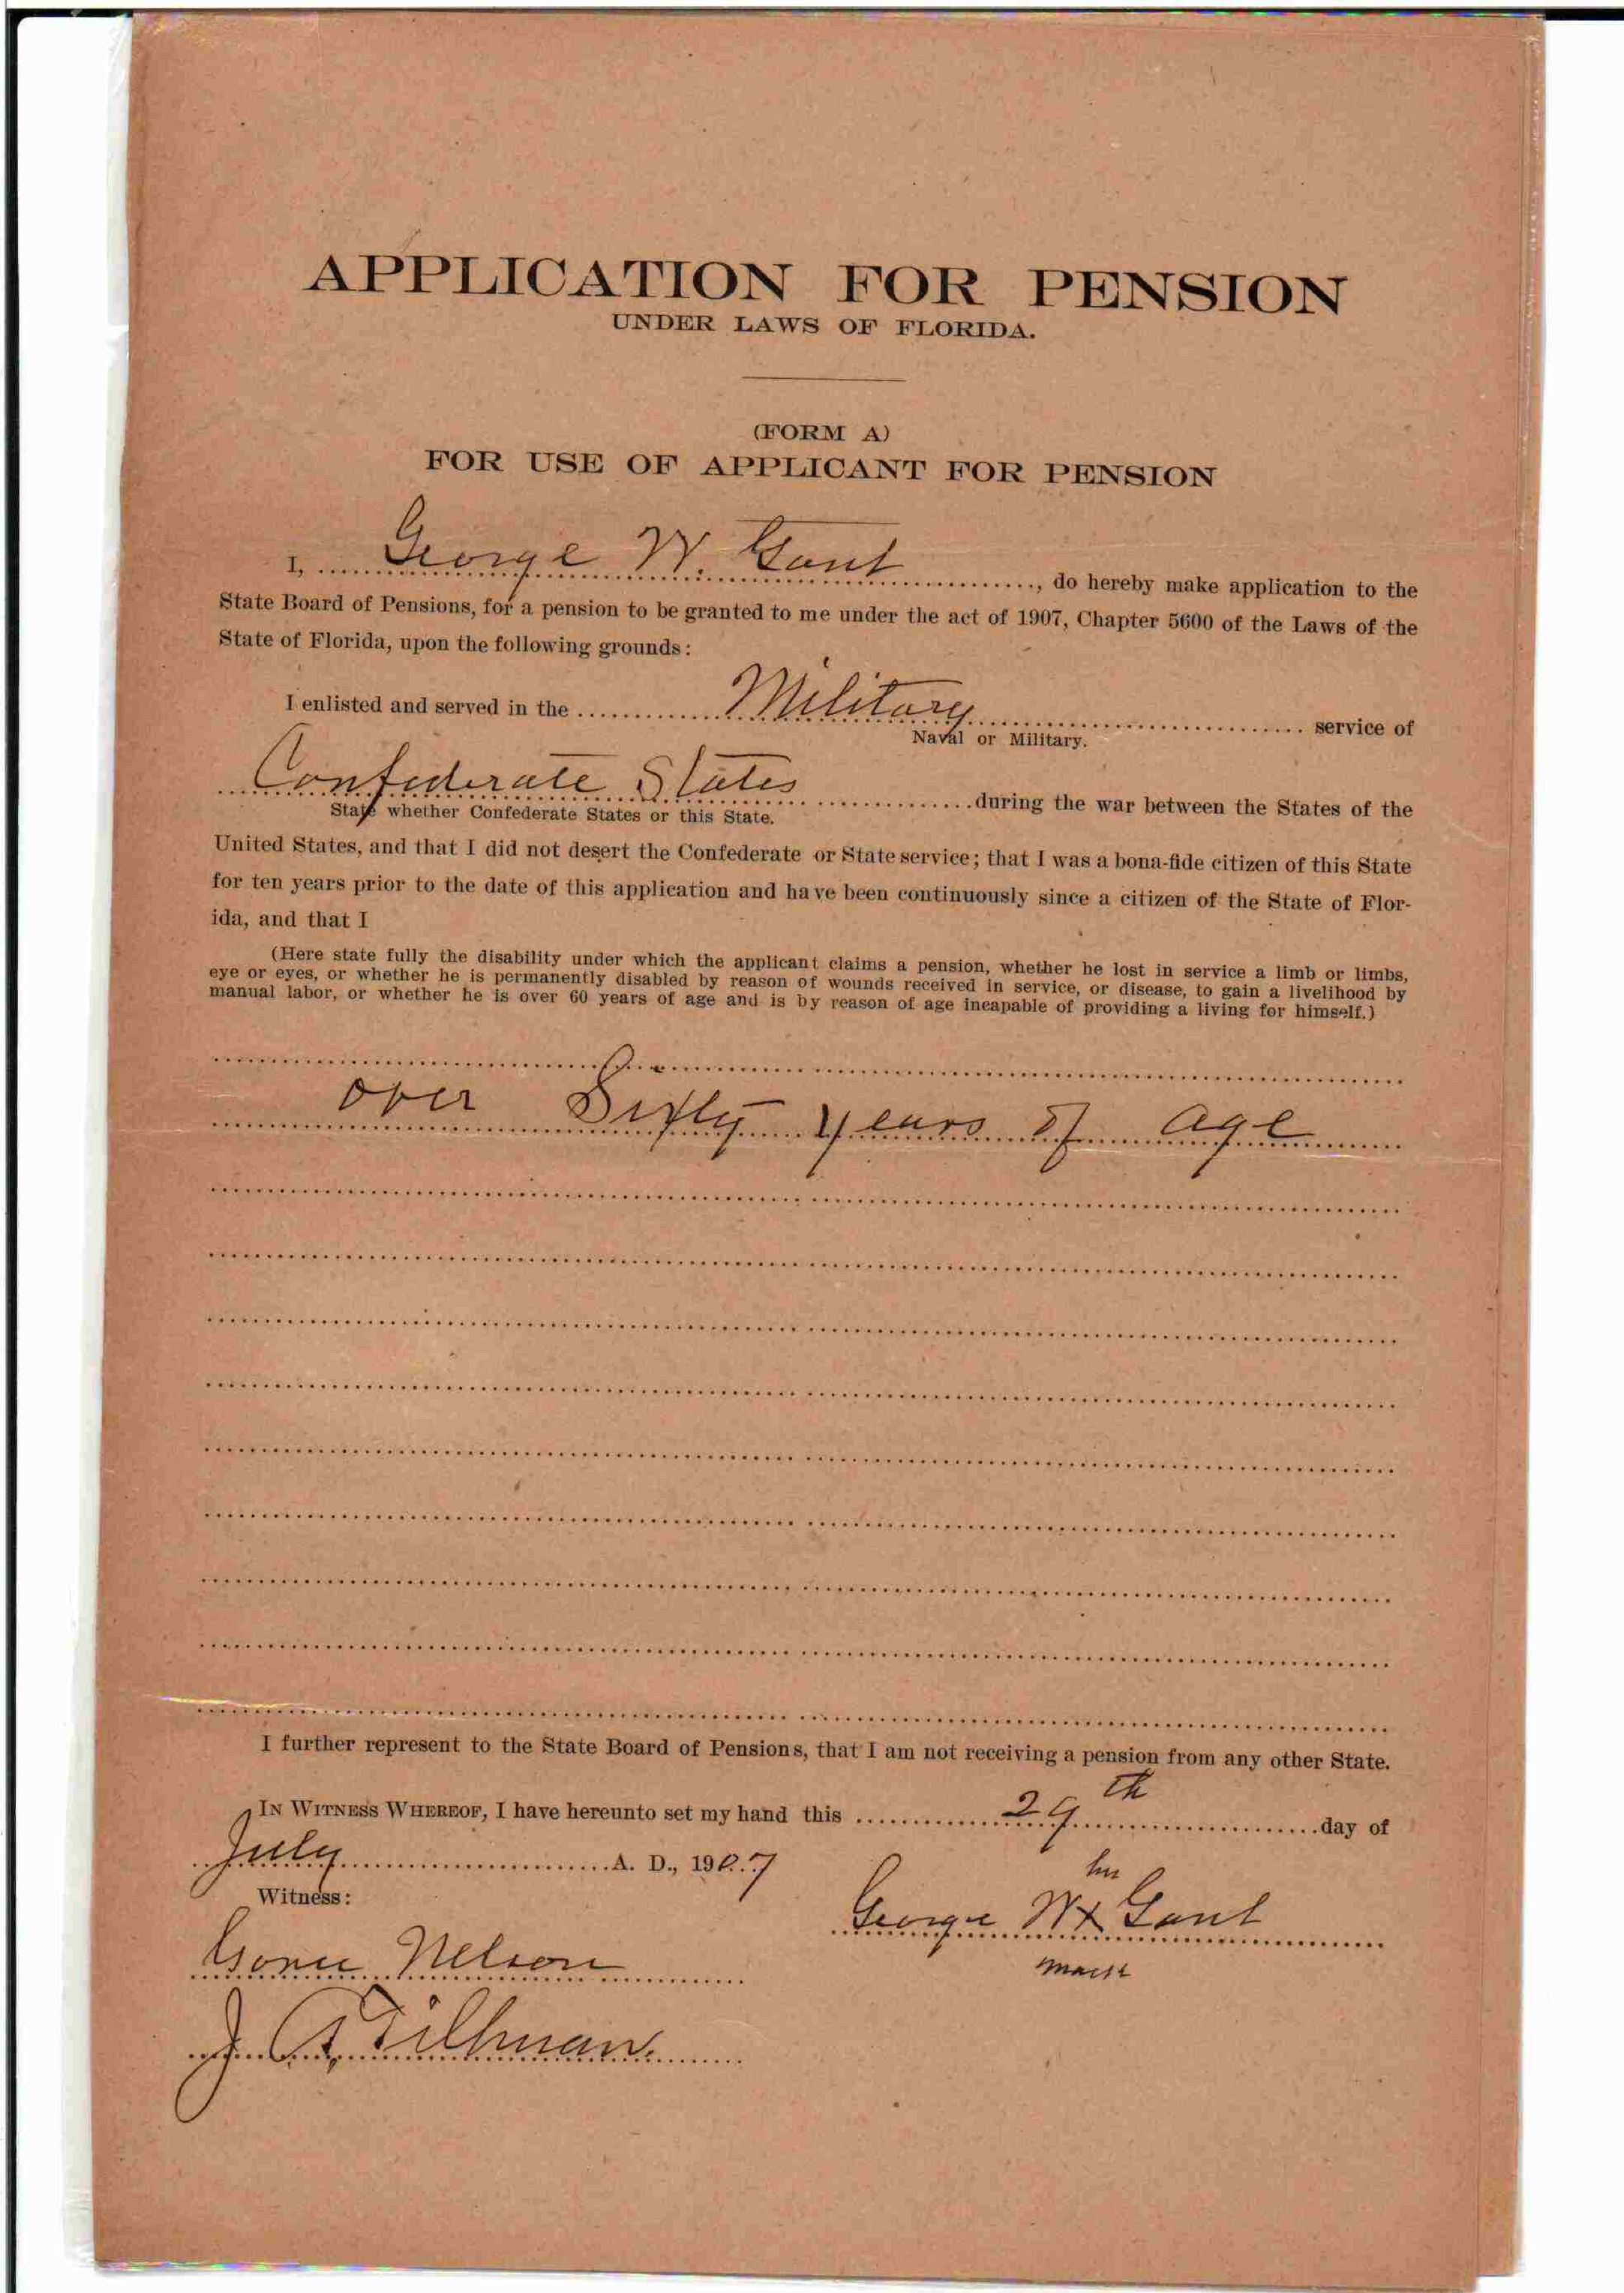 APPLICATION FOR PENSION
UNDER LAWS OF FLORIDA.
(FORM A)
FOR USE OF APPLICANT FOR PENSION
I, George W. Gant, do hereby make application to the
State Board of Pensions, for a pension to be granted to me under the act of 1907, Chapter 5600 of the Laws of the
State of Florida, upon the following grounds:
I enlisted and served in the Military service of
Naval or Military.
Confederate States during the war between the States of the
State whether Confederate States or this State.
United States, and that I did not desert the Confederate or State service; that I was a bona-fide citizen of this State
for ten years prior to the date of this application and have been continuously since a citizen of the State of Flor-
ida, and that I
(Here state fully the disability under which the applicant claims a pension, whether he lost in service a limb or limbs,
eye or eyes, or whether he is permanently disabled by reason of wounds received in service, or disease, to gain a livelihood by
manual labor, or whether he is over 60 years of age and is by reason of age incapable of providing a living for himself.)
over Sixty years of age
I further represent to the State Board of Pensions, that I am not receiving a pension from any other State.
IN WITNESS WHEREOF, I have hereunto set my hand this 29th day of
July A. D., 1907
his
Witness:
George W x Gant
mark
Nelson
J. A. Tillman.